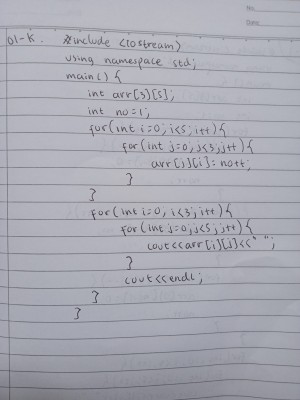 No.
Date
01-K. #include <iostream>
using namespace std;
main() {
int arr[3][5];
int no=1;
for(int i=0; i<5; i++){
for(int j=0; j<3; j++){
arr[j][i]=no++;
}
}
for(int i=0; i<3; i++){
for(int j=0; j<5; j++){
cout<<arr[i][j]<<" ";
}
cout<<endl;
}
}